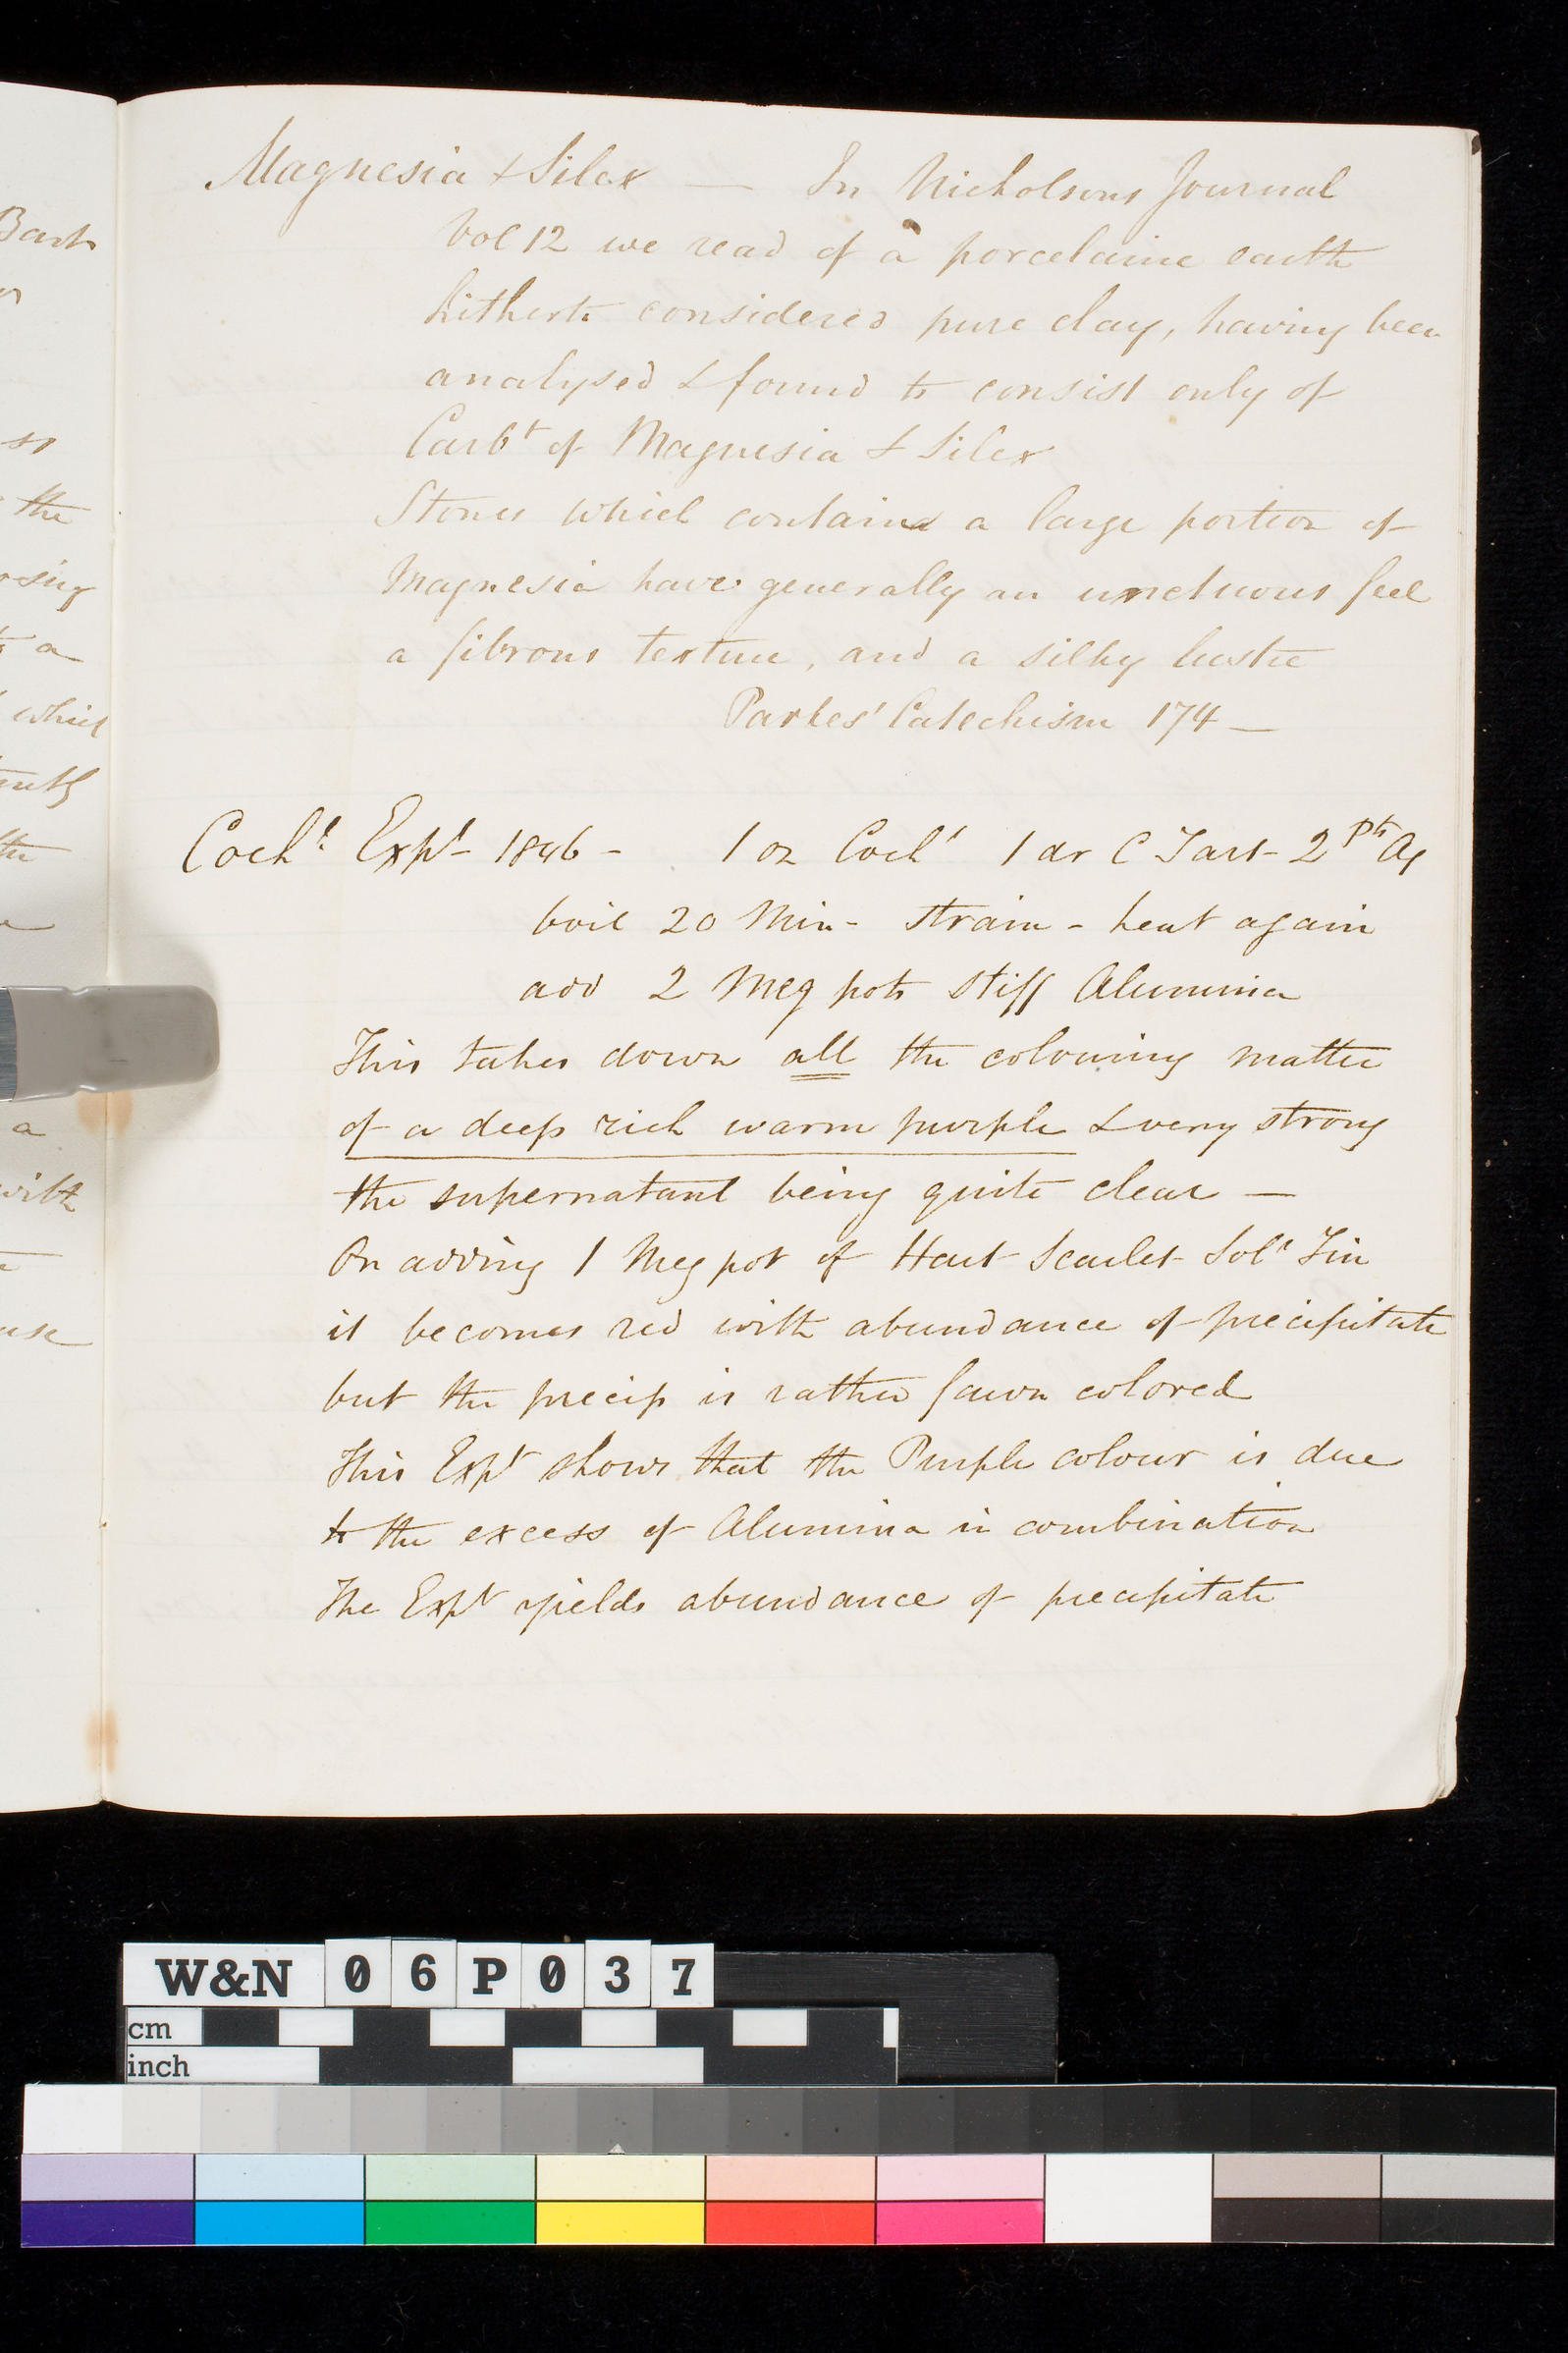 Magnesia & Silex — In Nicholsons Journal
Vol 12 we read of a porcelaine earth
hitherto considered pure clay, having been
analysed & found to consist only of
Carbt of Magnesia & Silex
Stones which contain a large portion of
Magnesia have generally an unctuous feel
a fibrous texture, and a silky lustre
Parkes' Catechism 174 —
Cochl Expt 1846 - 1 oz Cochl 1 dr C Tart - 2 Pts Aq
boil 20 Min - strain - heat again
add 2 Meg pots stiff Alumina
This takes down all the colouring matter
of a deep rich warm purple & very strong
the supernatant being quite clear —
On adding 1 Meg pot of Hart Scarlet Soln Tin
it becomes red with abundance of precipitate
but the precip is rather fawn colored
This Expt shows that the Purple colour is due
to the excess of Alumina in combination
The Expt yields abundance of precipitate
Bark
the
a
which
the
a
with
W&N 06P037
cm
inch